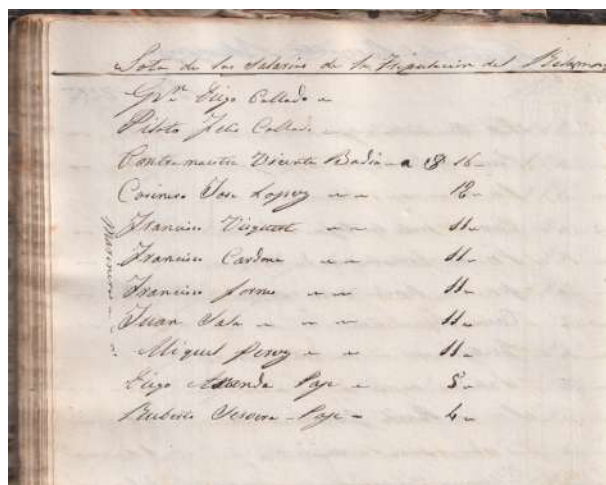 Nota de los Salarios de la Tripulacion del
Cpn. Diego Collado
Piloto Felix Collado
Contramaestre Vicente Badia a $ 16
Cosinero Jose Lopez 12
Francisco 11
Francisco Cardona 11
Francisco Torres 11
Juan Sala 11
Miguel Perez 11
Diego Paje 5
Paje 4
Marineros